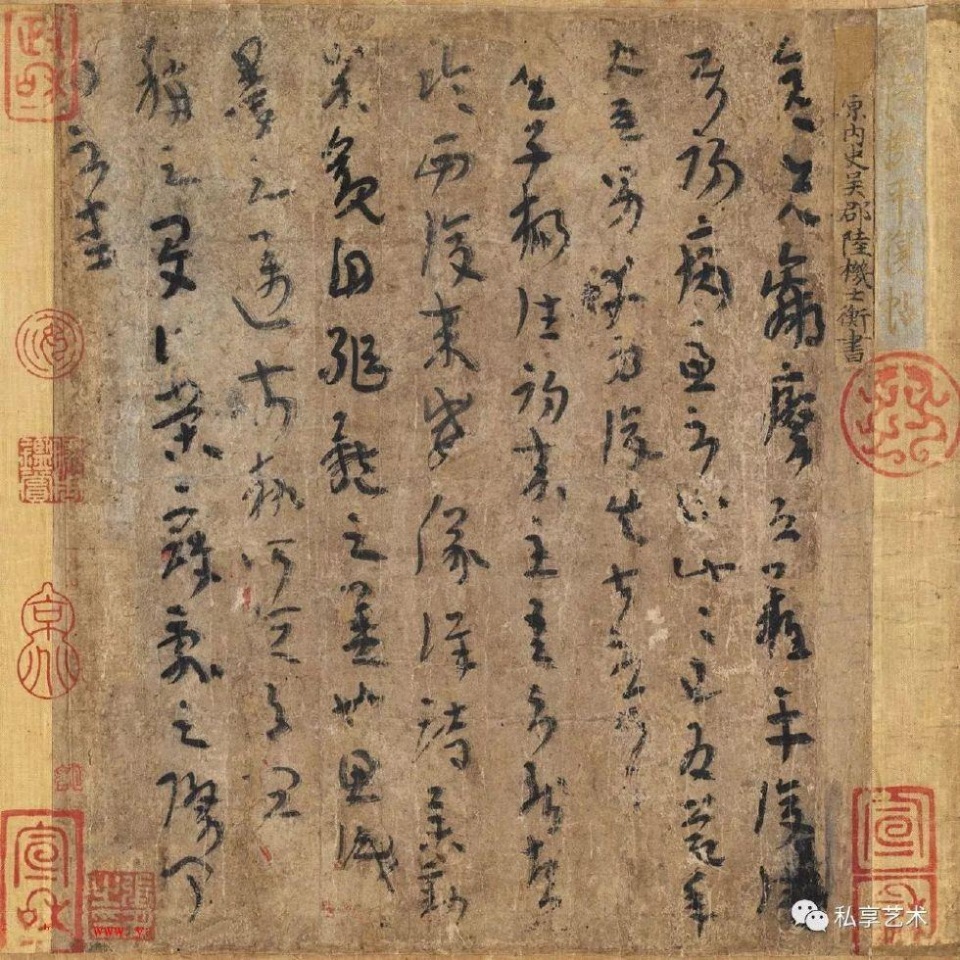 陸機平復帖
原内史吳郡陸機士衡書
彦先羸瘵恐難平復往屬
初病慮不止此此已為慶承
使唯男幸為復失前憂耳
吳子楊往初來主吾不能盡
臨西復來威儀詳跱舉動
成觀自軀體之美也思識
量之邁前執所恆有宜
稱之夏伯榮寇亂之際聞
問不悉
政和
宣和
宣和
私享艺术